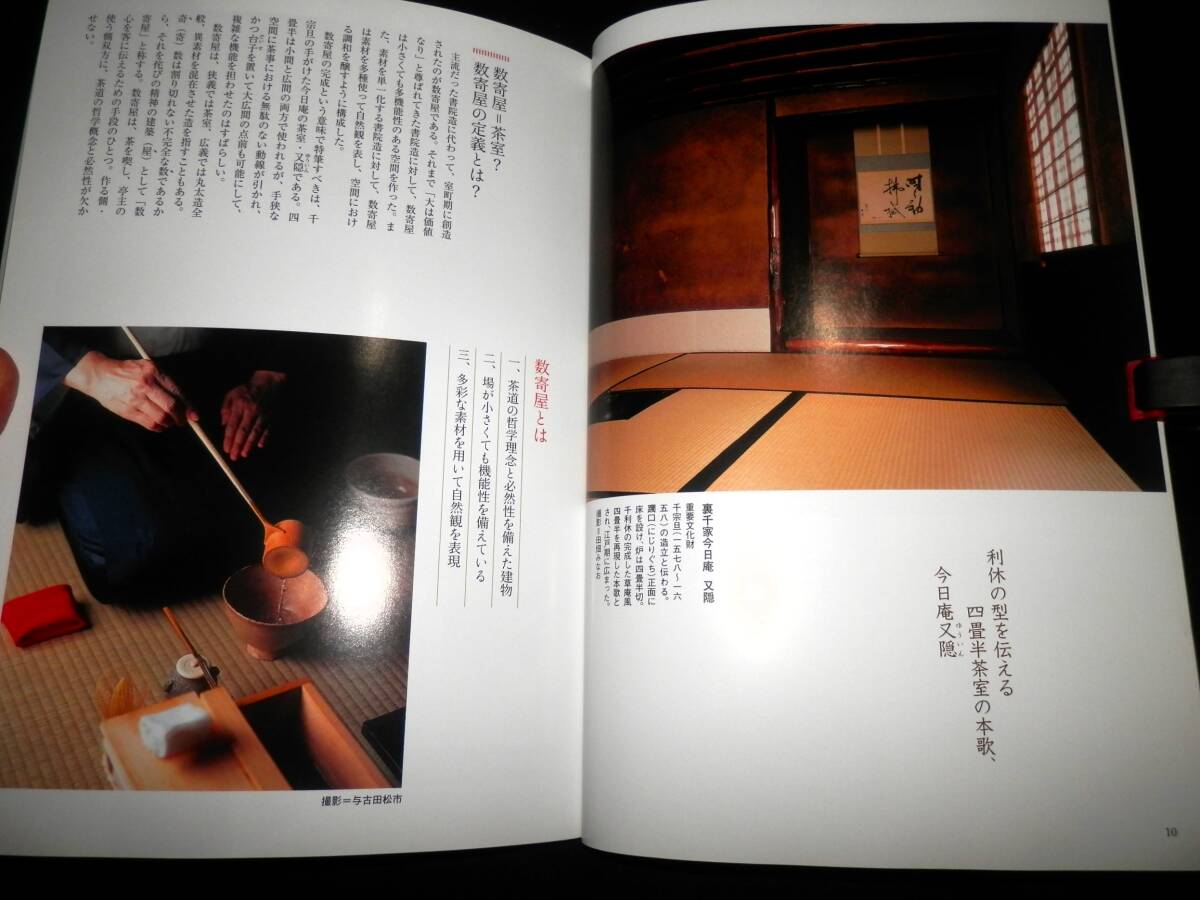 利休の型を伝える
四畳半茶室の本歌、
今日庵又隠
ゆういん
裏千家今日庵 又隠
重要文化財
千宗旦(一五七八〜一六
五八)の造立と伝わる。
躙口(にじりぐち)正面に
床を設け、炉は四畳半切。
千利休の完成した草庵風
四畳半を再現した本歌と
され、江戸期に広まった。
撮影=田畑みなお
10
数寄屋=茶室?
数寄屋の定義とは?
主流だった書院造に代わって、室町期に創造
されたのが数寄屋である。それまで「大は価値
なり」と尊ばれてきた書院造に対して、数寄屋
は小さくても多機能性のある空間を作った。ま
た、素材を単一化する書院造に対して、数寄屋
は素材を多種使って自然観を表し、空間におけ
る調和を醸すように構成した。
数寄屋の完成という意味で特筆すべきは、千
宗旦の手がけた今日庵の茶室・又隠である。四
ゆういん
畳半は小間と広間の両方で使われるが、手狭な
空間に茶事における無駄のない動線が引かれ、
かつ台子を置いて大広間の点前も可能にして、
だいす
複雑な機能を担わせたのはすばらしい。
数寄屋は、狭義では茶室、広義では丸太造全
般、異素材を混在させた造を指すこともある。
奇(寄)数は割り切れない不完全な数であるか
ら、それを侘びの精神の建築(屋)として「数
寄屋」と称する。数寄屋は、茶を喫し、亭主の
心を客に伝えるための手段のひとつ。作る側・
使う側双方に、茶道の哲学概念と必然性が欠か
せない。
数寄屋とは
一、茶道の哲学理念と必然性を備えた建物
二、場が小さくても機能性を備えている
三、多彩な素材を用いて自然観を表現
撮影=与古田松市